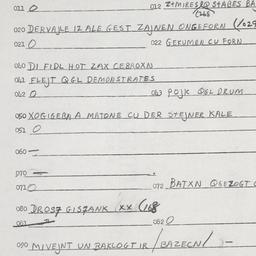 011 O 012 ZTMIRES
020 DERVAJLE IZ ALE GEST ZAJNEN ONGEFORN
021 O 022 GEKUMEN CU FORN
060 DI FIDL HOT ZAX CEBROXN
061 FLEJT QGL DEMONSTRATES
062 O 063 POJK QGL DRUM
050 XOGIGEBN A MATONE CU DER STEJNER KALE
051 O
060 —
070 —
071 O 072 BATXN
080 DROSZ GISZANK XX (168
081 082 O
090 MIVEJNT UN BAKLOGT IR / BAZECN / —